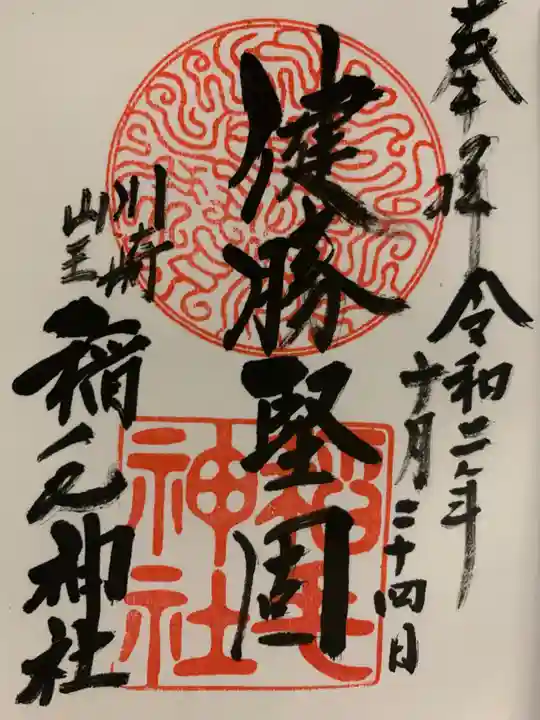 奉拝
令和二年
十月二十四日
健勝堅固
川崎
山王
稲毛神社
稲毛
神社